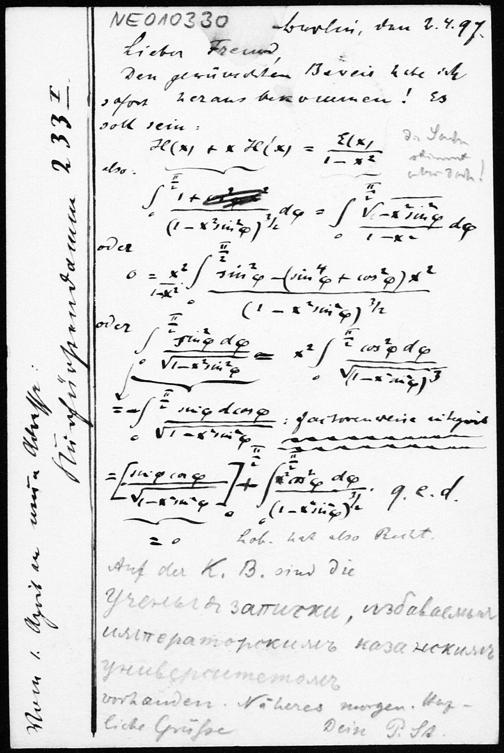 NE010330
Berlin, den 2.4.97.
Lieber Freund,
Den gewünschten Beweis habe ich
sofort herausbekommen! Es
soll sein:
H(x) + x H'(x) = E(x) / (1 - x²)
die Sache
stimmt
aber doch!
also.
∫₀^{π/2} 1 / (1 - x² sin²φ)^{3/2} dφ = ∫₀^{π/2} √(1 - x² sin²φ) / (1 - x²) dφ
oder
0 = x² / (1 - x²) ∫₀^{π/2} (sin²φ - (sin⁴φ + cos²φ) x²) / (1 - x² sin²φ)^{3/2}
oder
∫₀^{π/2} sin²φ dφ / √(1 - x² sin²φ) = x² ∫₀^{π/2} cos²φ dφ / √(1 - x² sin²φ)³
= -∫₀^{π/2} sinφ dcosφ / √(1 - x² sin²φ) : factorenweise integrirt
= [sinφ cosφ / √(1 - x² sin²φ)]₀^{π/2} + ∫₀^{π/2} x² cos²φ dφ / (1 - x² sin²φ)^{3/2} . q.e.d.
= 0
Lob. hat also Recht.
Auf der K. B. sind die
ученыя записки, издаваемыя
императорскимъ казанскимъ
университетомъ
vorhanden. Näheres morgen. Herz-
liche Grüße
Dein P. St.
Vom 1. April an neue Adresse:
Kurfürstendamm 233 I